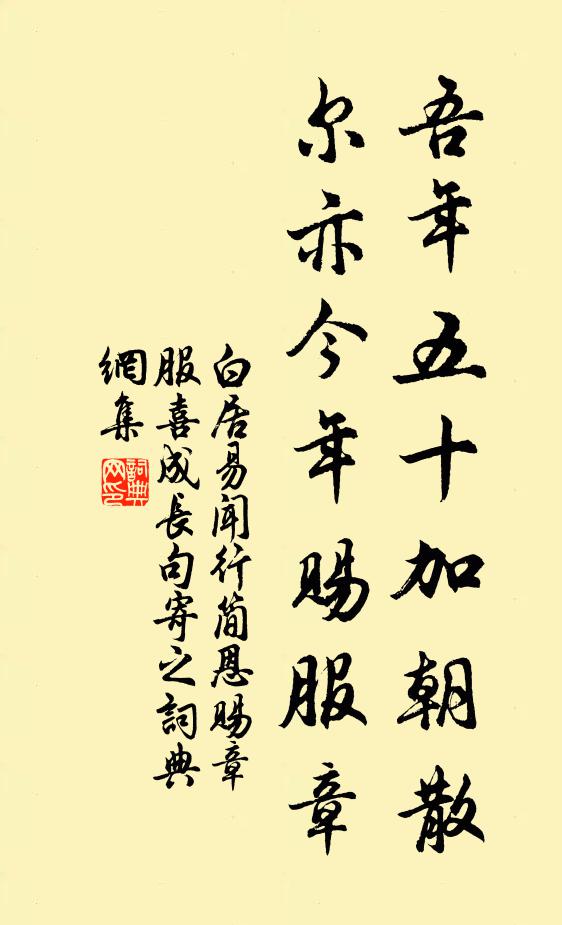 吾年五十加朝散
尔亦今年賜服章
白居易闻行简恩賜章
服喜成長句寄之詞典
網集
詞典网印